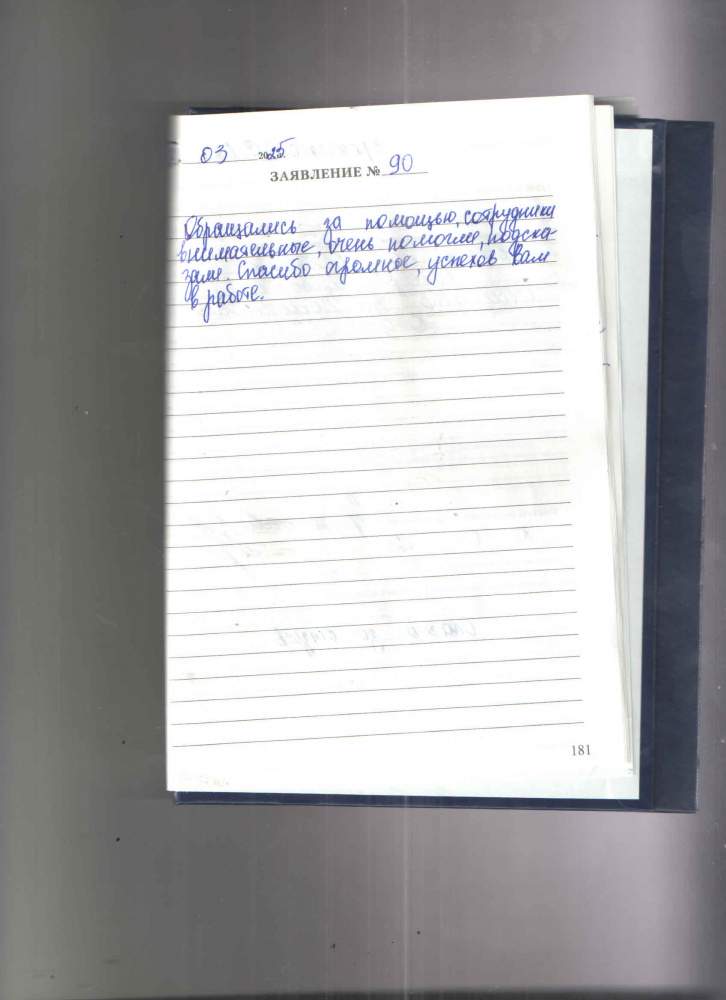 03 2025г.
ЗАЯВЛЕНИЕ № 90
Обращались за помощью, сотрудники
внимательные, очень помогли, подска-
зали. Спасибо огромное, успехов Вам
в работе.
181